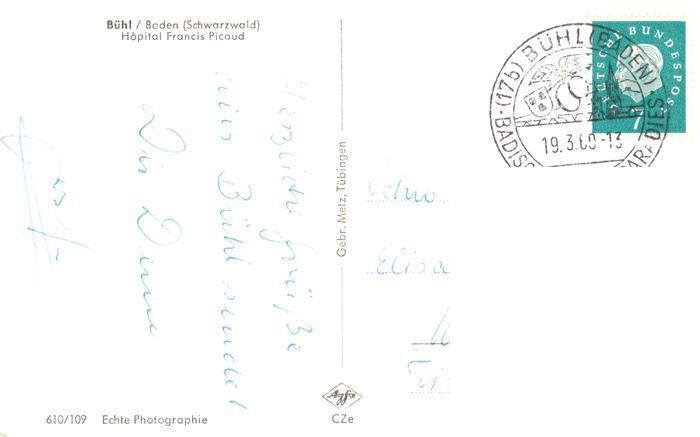 Bühl / Baden (Schwarzwald)
Hôpital Francis Picaud
Herzliche Grüße
aus Bühl sendet
Dir
Gebr. Metz, Tübingen
Elisa
(17b) BÜHL (BADEN)
19.3.60-13
BADISC
PARADIES
DEUTSCHE BUNDESPOST
7
Agfa
CZe
610/109 Echte Photographie